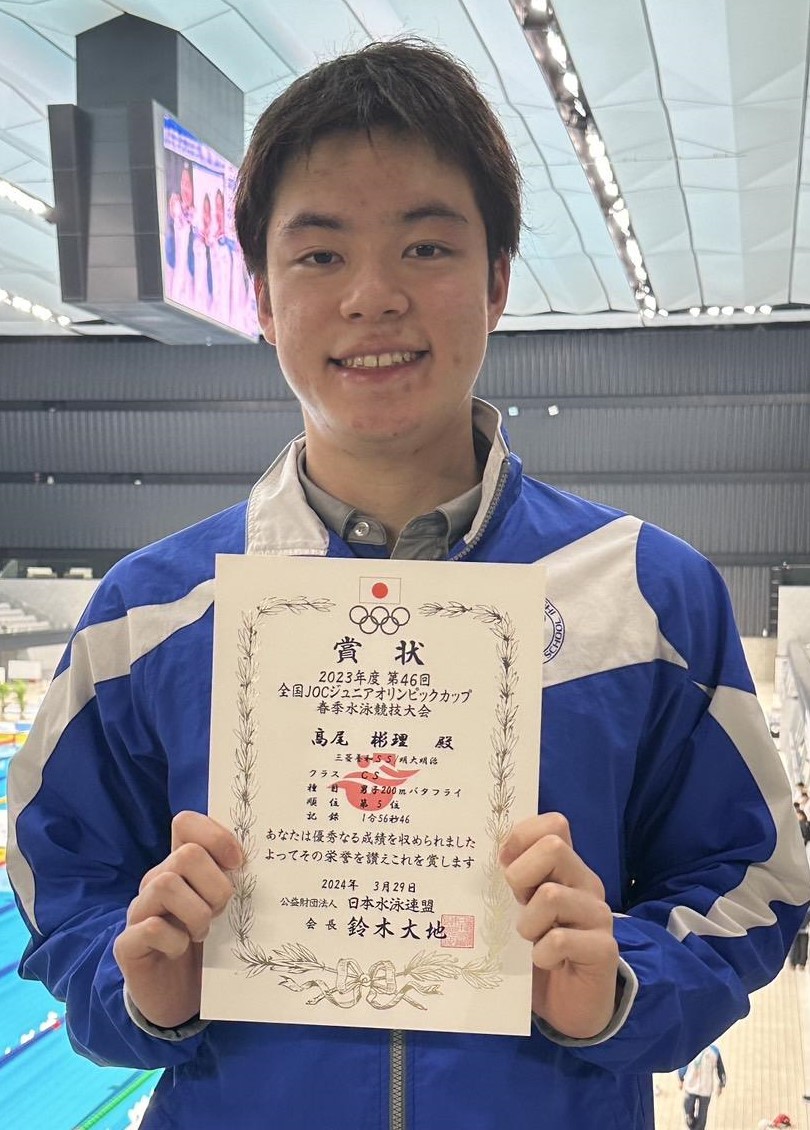 賞 状
2023年度 第46回
全国JOCジュニアオリンピックカップ
春季水泳競技大会
髙尾 彬理 殿
三菱養和SS/明大明治
クラス CS
種目 男子200mバタフライ
順位 第5位
記録 1分56秒46
あなたは優秀なる成績を収められました
よってその栄誉を讃えこれを賞します
2024年 3月29日
公益財団法人 日本水泳連盟
会長 鈴木大地
SCHOOL